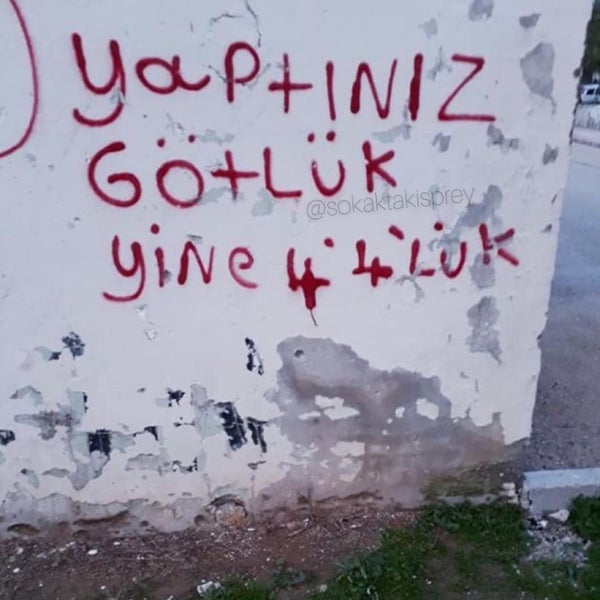 yaptINIZ
GÖtLÜK
@sokaktakisprey
yiNe 4'4'LÜK